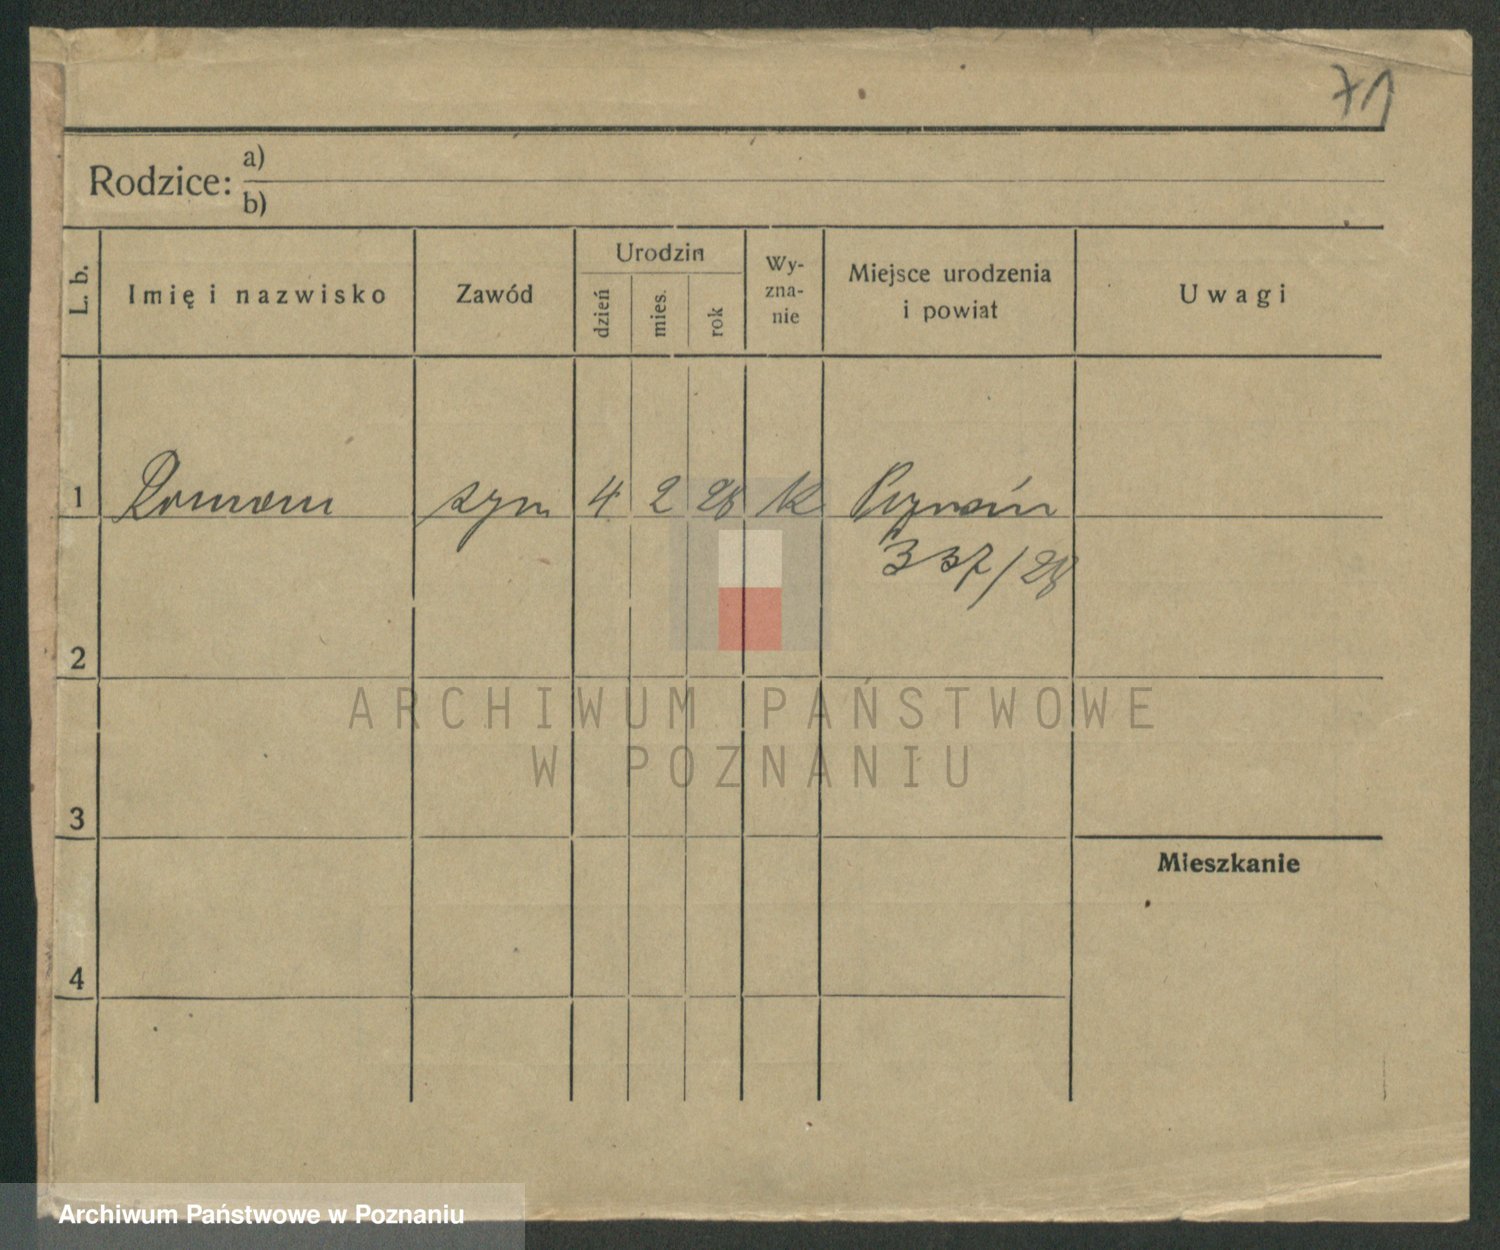 71
Rodzice: a)
b)
L. b.
Imię i nazwisko
Zawód
Urodzin
dzień
mies.
rok
Wy-
zna-
nie
Miejsce urodzenia
i powiat
Uwagi
1 Roman syn 4 2 28 k Poznań
337/28
2
3
4
Mieszkanie
ARCHIWUM PAŃSTWOWE
W POZNANIU
Archiwum Państwowe w Poznaniu